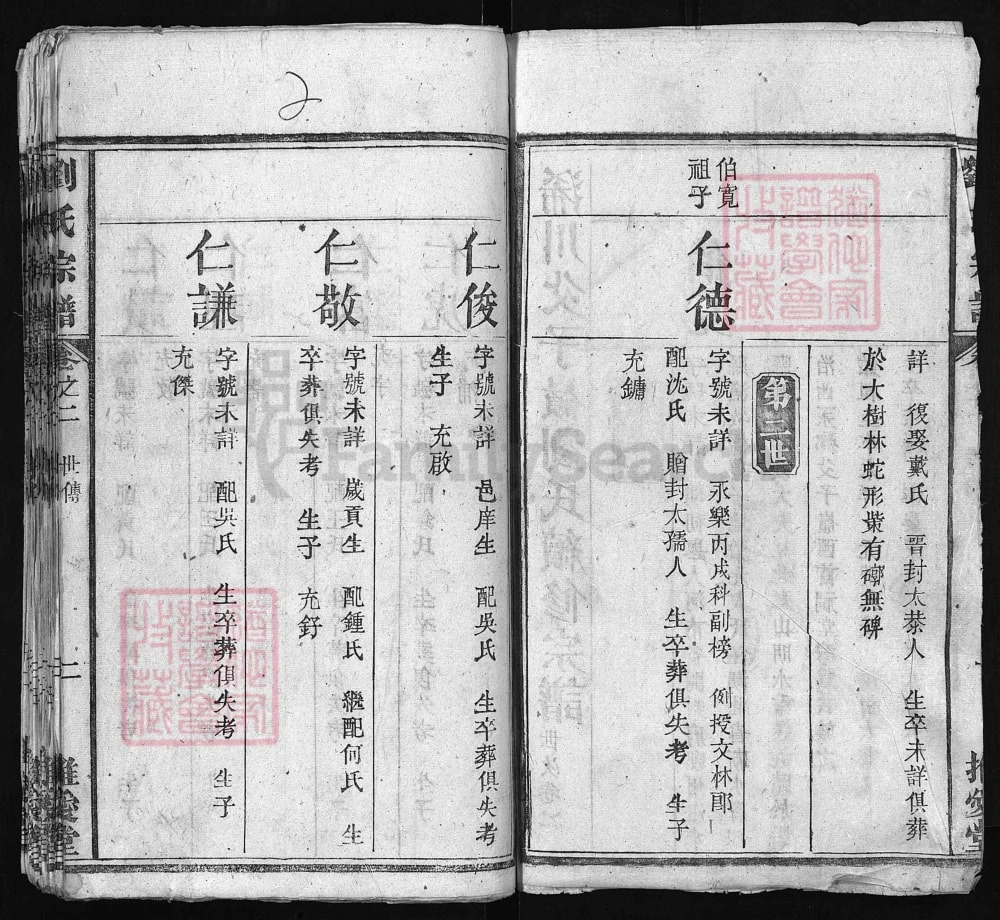 詳 復娶戴氏 晉封太恭人 生卒未詳俱葬
於大樹林蛇形塋有磜無碑
第二世
伯寬
祖子
仁德
字號未詳 永樂丙戌科副榜 例授文林郎
配沈氏 贈封太孺人 生卒葬俱失考 生子
充鏞
仁俊
字號未詳 邑庠生 配吳氏 生卒葬俱失考
生子 充啟
仁敬
字號未詳 歲貢生 配鍾氏 繼配何氏 生
卒葬俱失考 生子 充釪
仁謙
字號未詳 配吳氏 生卒葬俱失考 生子
充傑
劉氏宗譜
卷之二 世傳
二
推愛堂
2
FamilySearch